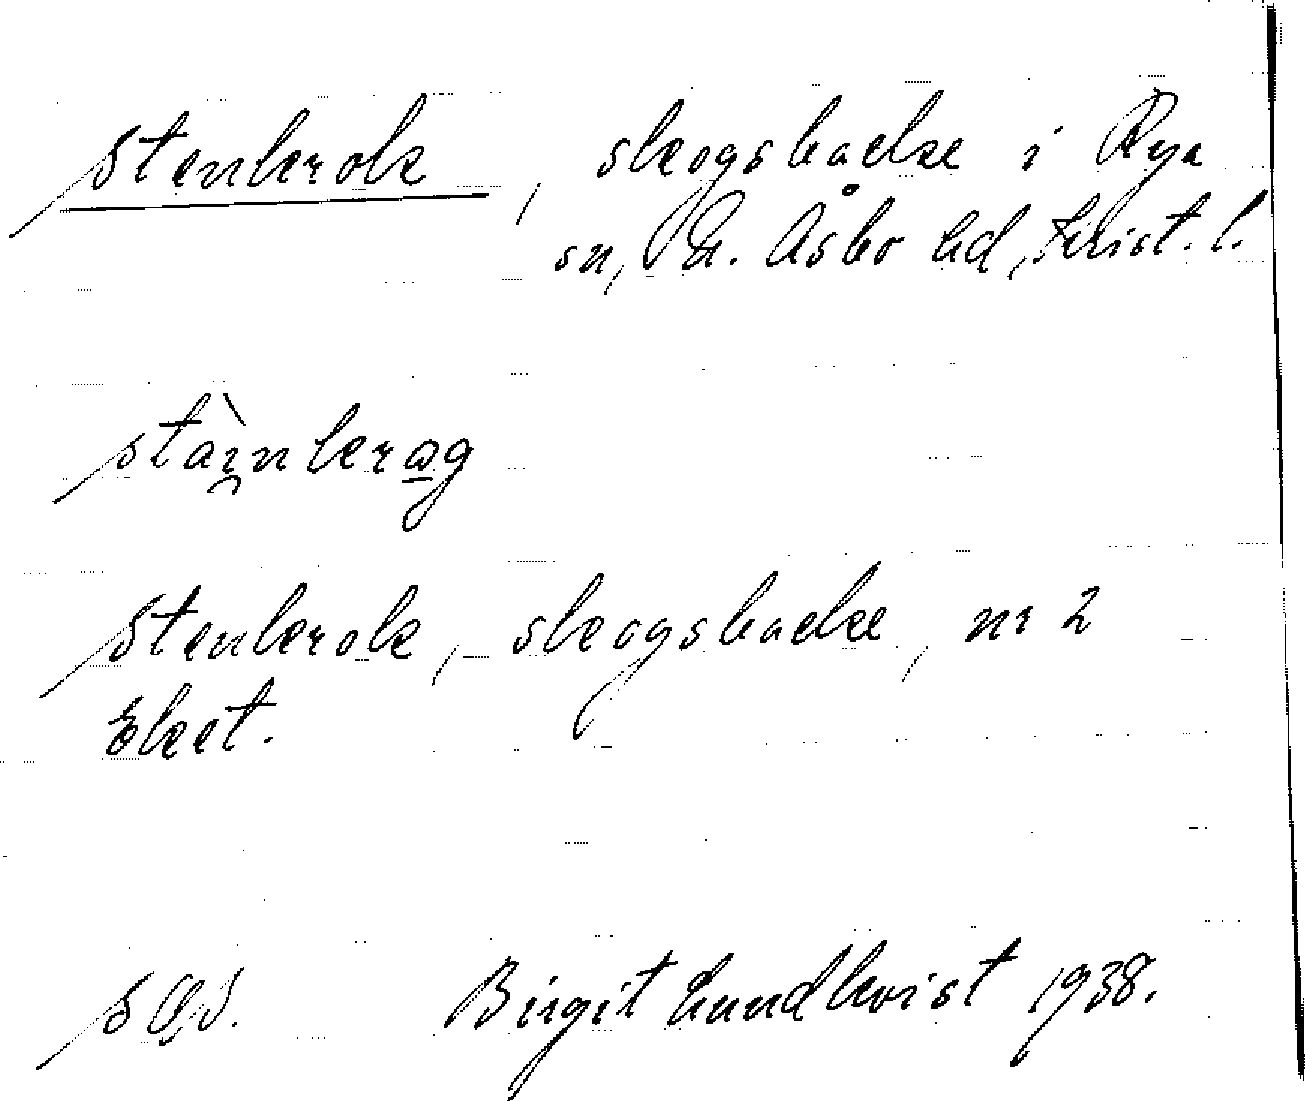 Stenkrok, skogsbacke i Rya
sn, N. Åsbo hd, Krist. l.
staìnkrɷg
Stenkrok, skogsbacke, nr 2
Eket.
Birgit Lundkvist 1938.